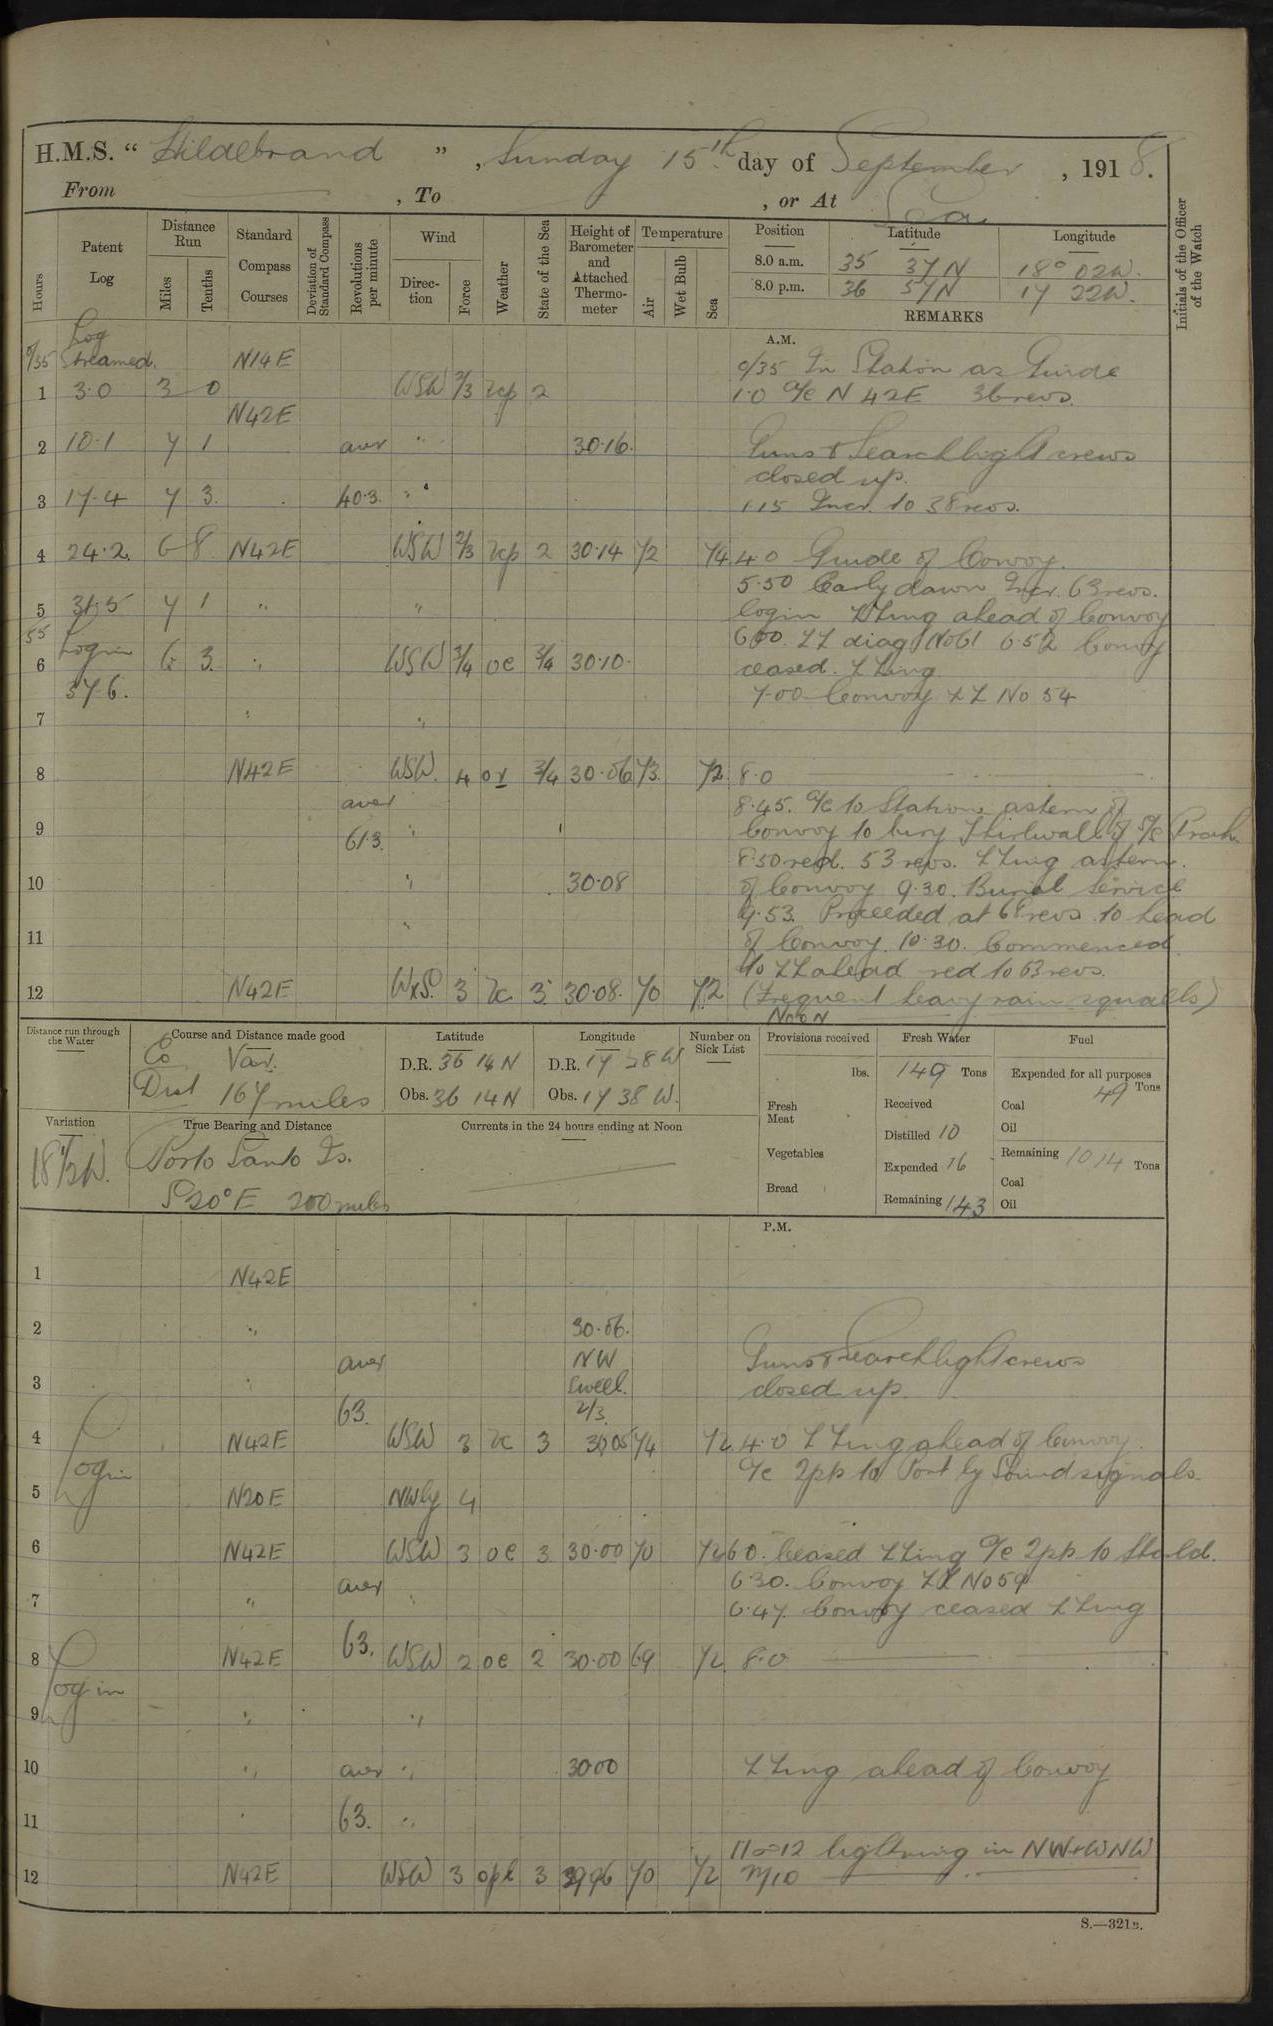 H.M.S. “ Hildebrand ” , Sunday 15th day of September , 1918.
From , To , or At Sea
Hours
Patent Log
Distance Run
Miles
Tenths
Standard Compass Courses
Deviation of Standard Compass
Revolutions per minute
Wind
Direction
Force
Weather
State of the Sea
Height of Barometer and Attached Thermometer
Temperature
Air
Wet Bulb
Sea
Position Latitude Longitude
8.0 a.m. 35 37 N 18° 02 W.
8.0 p.m. 36 57 N 17 22 W.
REMARKS
Initials of the Officer of the Watch
A.M.
Log
0/35 Streamed. N14E 0/35 In Station as Guide
1 3.0 3 0 WSW 2/3 2 1.0 a/c N 42E 36 revs.
N42E
2 10.1 7 1 aver " 30.16. Guns & Searchlight crews
closed up.
3 17.4 7 3. 40.3. " 1.15 Incr. to 38 revs.
4 24.2. 6 8 N42E WSW 2/3 2 30.14 72 74 4.0 Guide of Convoy.
5.50 Early dawn Incr. 63 revs.
5 31.5 7 1 " " login ZZing ahead of Convoy
55 Log in 6.00. ZZ diag No 61 6.52 Convoy
6 6 3. " WSW 3/4 oc 3/4 30.10. ceased. ZZing
37.6. 7.00 Convoy ZZ No 54
7 " "
8 N42E WSW. 4 or 3/4 30.06 73. 72 8.0
aver 8.45. a/c to Station astern of
9 61.3. " Convoy to bury Thirlwall of S/S
8.50 red. 53 revs. ZZing astern.
10 " 30.08 of Convoy 9.30. Burial Service
9.53. Proceeded at 68 revs. to head
11 " of Convoy. 10.30. Commenced
to ZZ ahead red to 63 revs.
12 N42E WxS. 3 3 30.08. 70 72 (Frequent heavy rain squalls)
Noon
Distance run through the Water
Course and Distance made good
Co Var.
Dist 167 miles
Latitude
D.R. 36 14 N
Obs. 36 14 N
Longitude
D.R. 17 38 W
Obs. 17 38 W.
Number on Sick List
Provisions received
lbs.
Fresh Meat
Vegetables
Bread
Fresh Water
149 Tons
Received
Distilled 10
Expended 16
Remaining 143
Fuel
Expended for all purposes
49 Tons
Coal
Oil
Remaining 1014 Tons
Coal
Oil
Variation
18 1/2 W.
True Bearing and Distance
Porto Santo Is.
S20°E 200 miles
Currents in the 24 hours ending at Noon
P.M.
1 N42E
2 " 30.06.
aver NW Guns & Searchlight crews
3 " Swell. closed up.
63. 2/3.
4 N42E WSW 3 3 30.05 74 72 4.0 ZZing ahead of Convoy.
Log in a/c 2pts to Port by Sound signals.
5 N20E NWly 4
6 N42E WSW 3 oc 3 30.00 70 72 6.0. Ceased ZZing a/c 2pts to Starbd.
aver 6.30. Convoy ZZ No 59
7 " " 6.47. Convoy ceased ZZing
8 N42E 63. WSW 2 oc 2 30.00 69 72 8.0
Log in
9 " "
10 " aver " 30.00 ZZing ahead of Convoy
11 " 63. "
11 to 12 lightning in NW & WNW
12 N42E WSW 3 3 29.96 70 72
S.—321B.